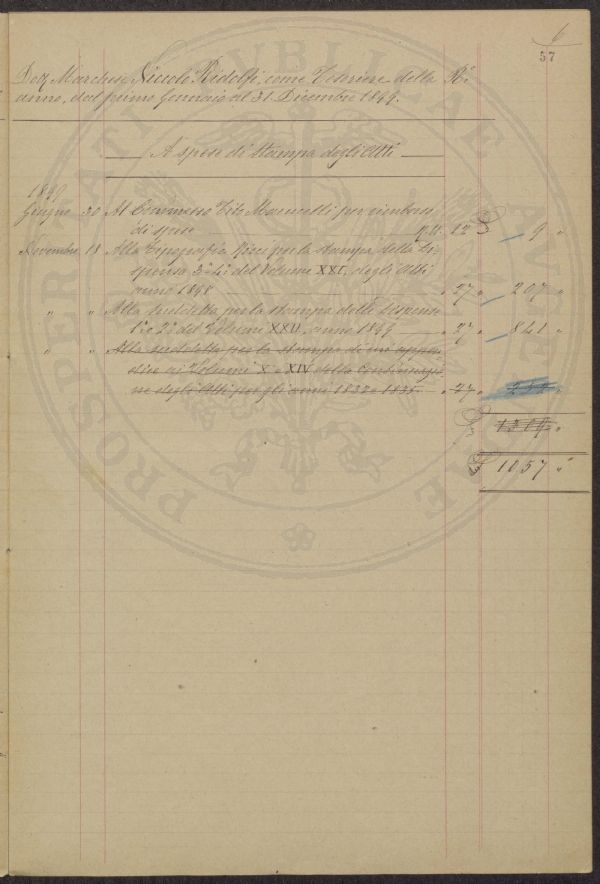 6
57
Dox Marchese Niccolò Ridolfi come Tesoriere della Rl.
anno, dal primo Gennaio al 31 Dicembre 1849.
A spese di Stampa degli Atti
1849
Giugno 30 Al Commesso Tito Marucelli per rimborso
di spese 12 £ 9 "
Novembre 18 Alla Tipografia Ricci per la stampa della Di-
spensa 3a 4a del Volume XXI, degli Atti
anno 1848 " 27 " 207 "
" " Alla suddetta per la stampa delle Dispense
1a e 2a del Volume XXII, anno 1849 " 27 " 841 "
" " Alla suddetta per la stampa di un'appen-
dice ai Volumi X e XIV della Continuazio-
ne degli Atti per gli anni 1832 e 1835 " 27 "
"
£ 1057 "
PROSPERITATI PVBLICAE AVGENDAE